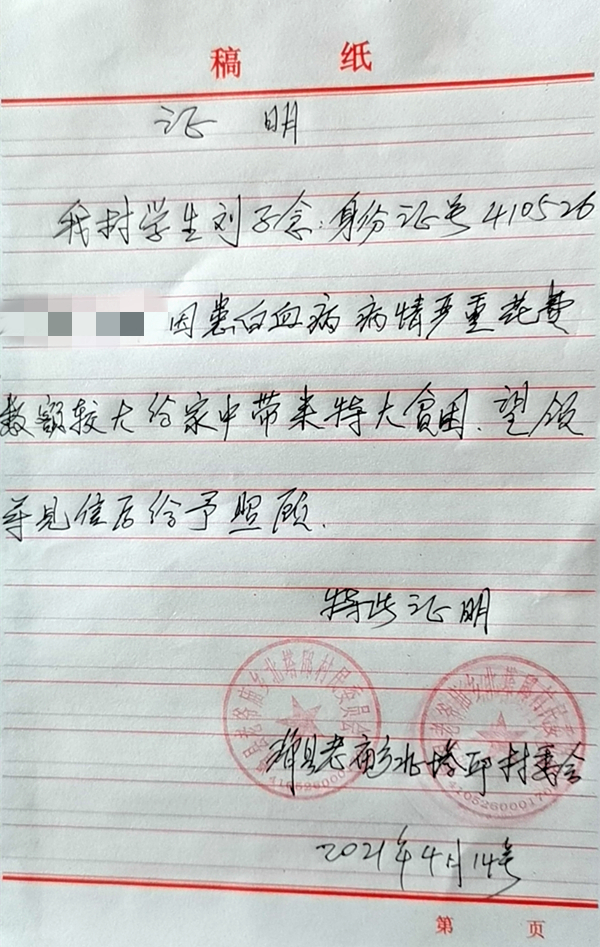 稿 纸
证 明
我村学生刘子念:身份证号410526
因患白血病病情严重花费
数额较大给家中带来特大贫困.望领
导见信后给予照顾.
特此证明
滑县老庙乡北塔邱村委会
2021年4月14号
第 页